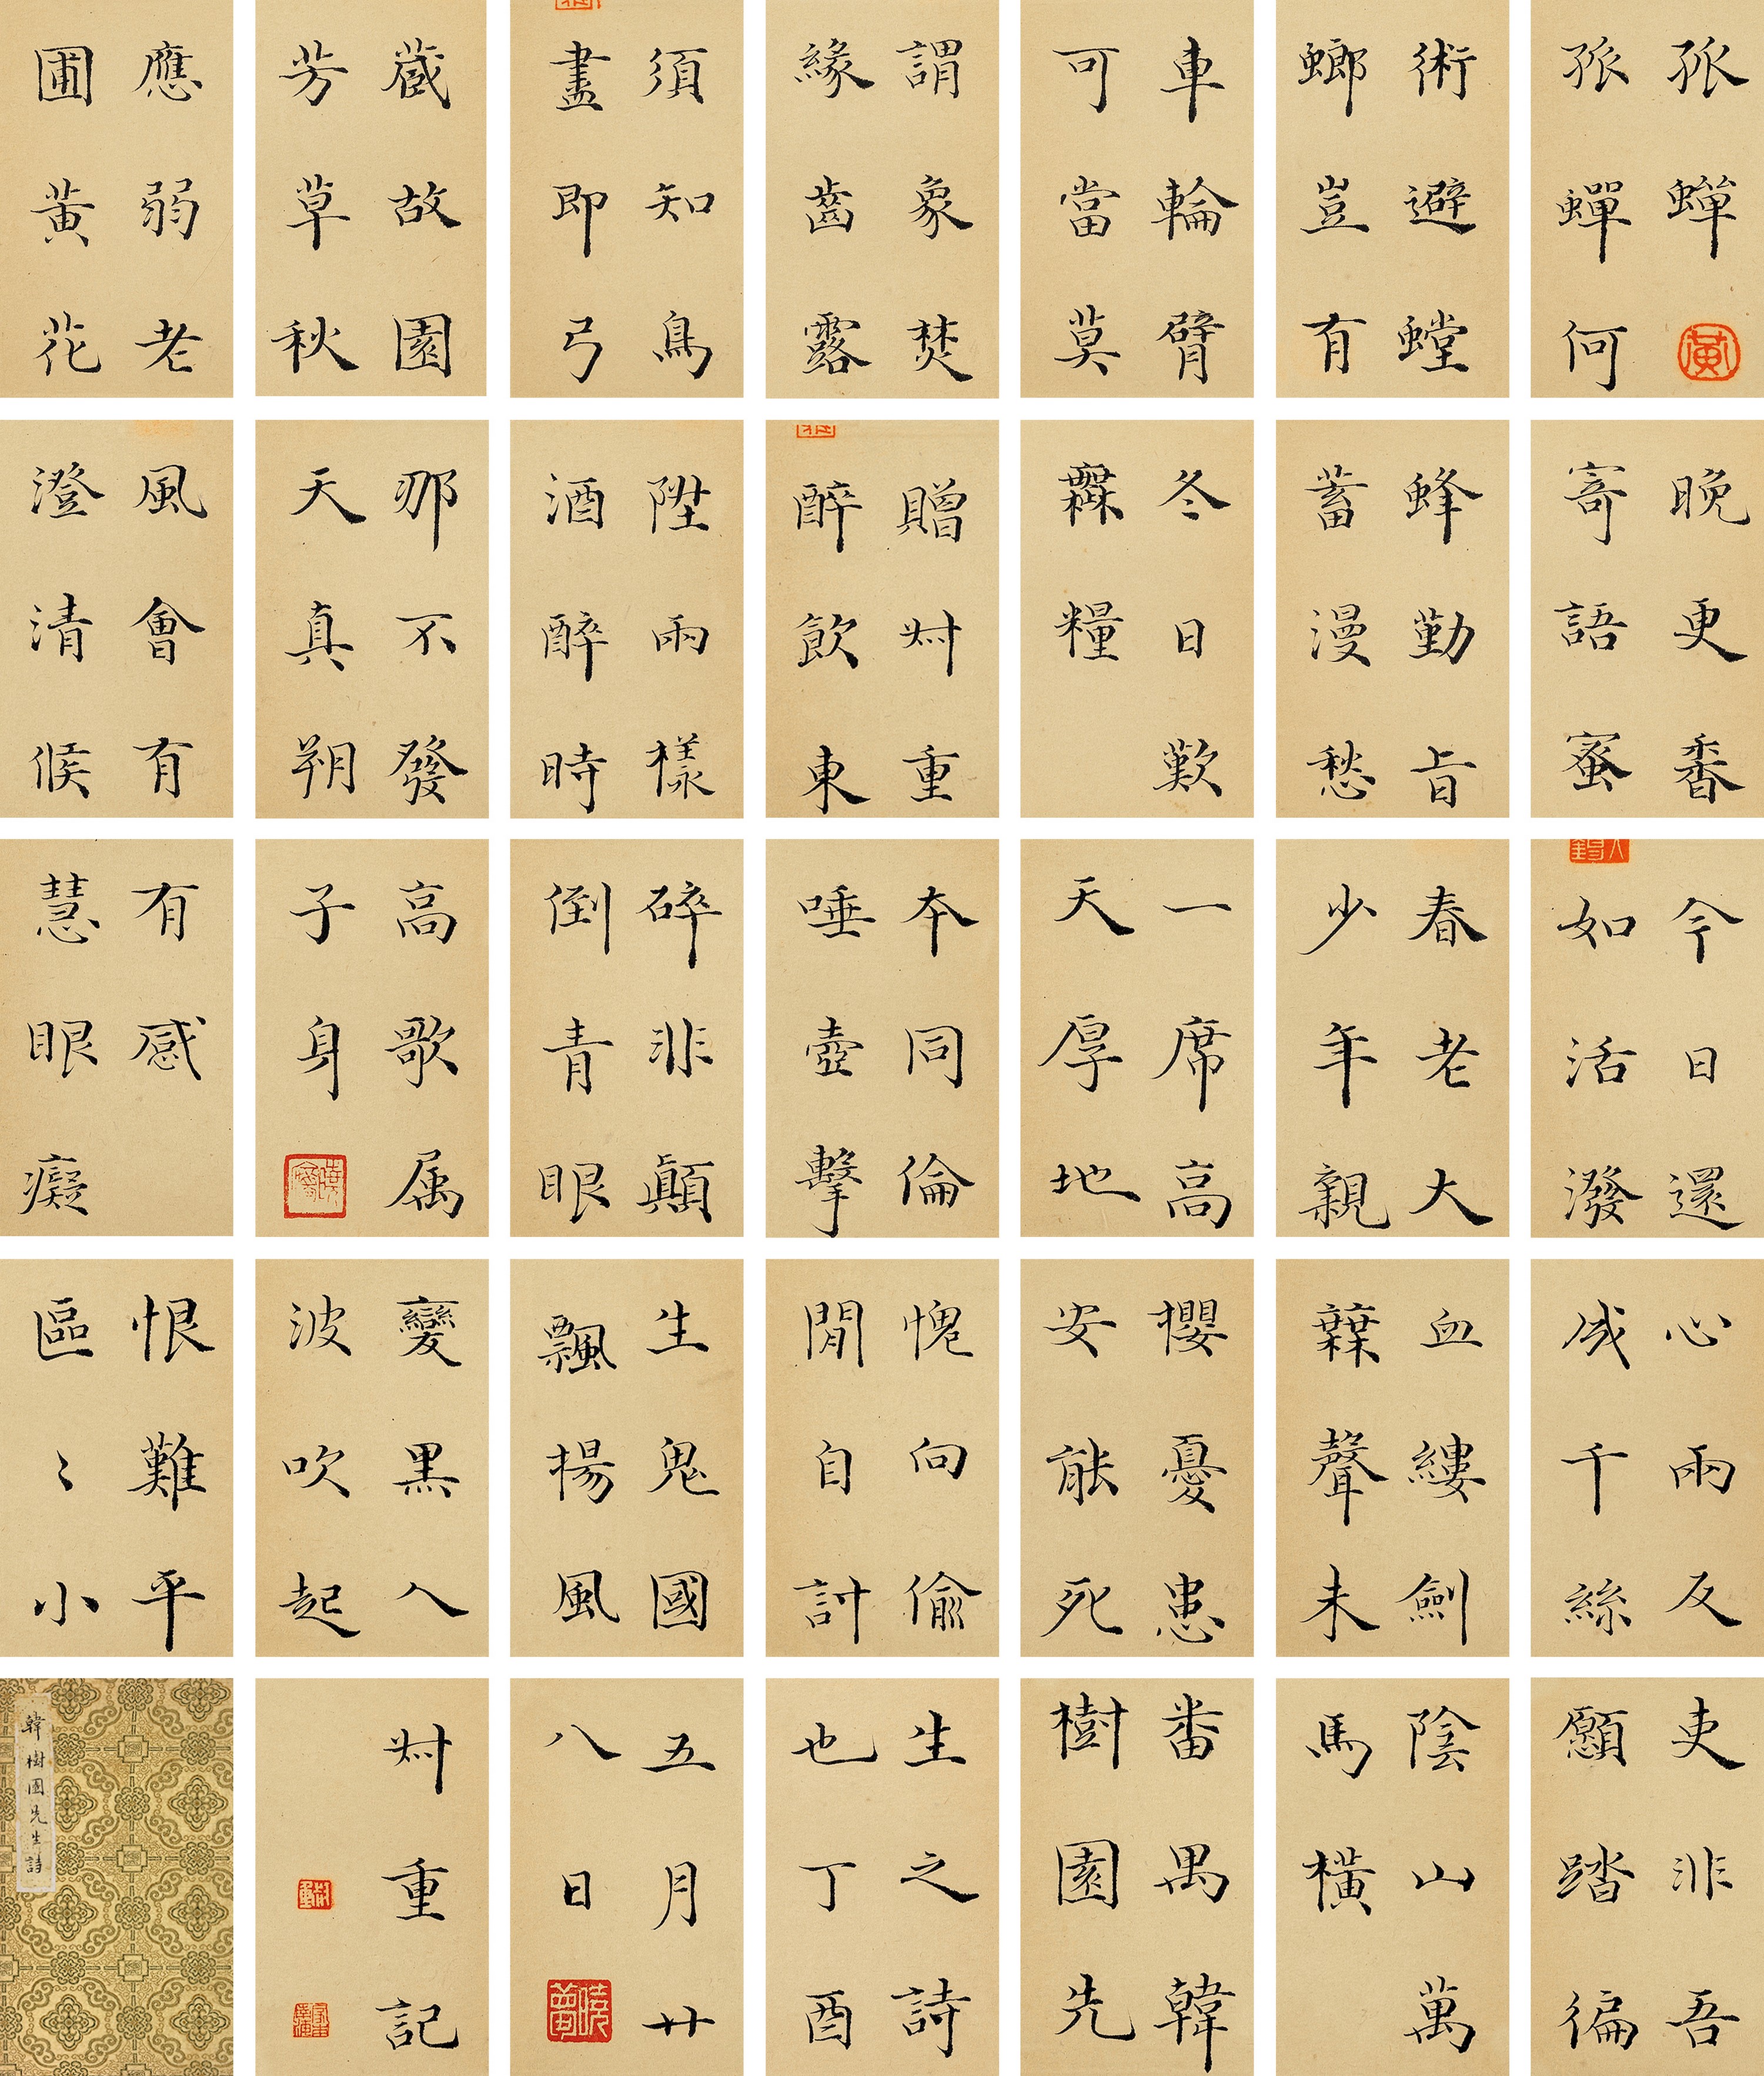 孤蟬
黃
孤蟬何
術避螳
螂豈有
車輪臂
可當莫
謂象焚
緣齒露
須知鳥
盡即弓
藏故園
芳草秋
應弱老
圃黃花
晚更香
寄語蜜
蜂勤旨
蓄漫愁
冬日歎
橆糧
贈艸重
醉飲東
陞兩樣
酒醉時
那不發
天真朔
風會有
澄清候
今日還
如活潑
春老大
少年親
一席高
天厚地
夲同倫
唾壺擊
碎非顛
倒青眼
高歌属
子身
有感
慧眼癡
心兩反
成千絲
血縷劍
橆聲未
攖憂患
安能死
愧向偷
閒自討
生鬼國
飄揚風
變黑入
波吹起
恨難平
區〻小
吏非吾
願踏徧
陰山萬
馬橫
番禺韓
樹園先
生之詩
也丁酉
五月廿
八日
艸重記
韓樹園先生詩